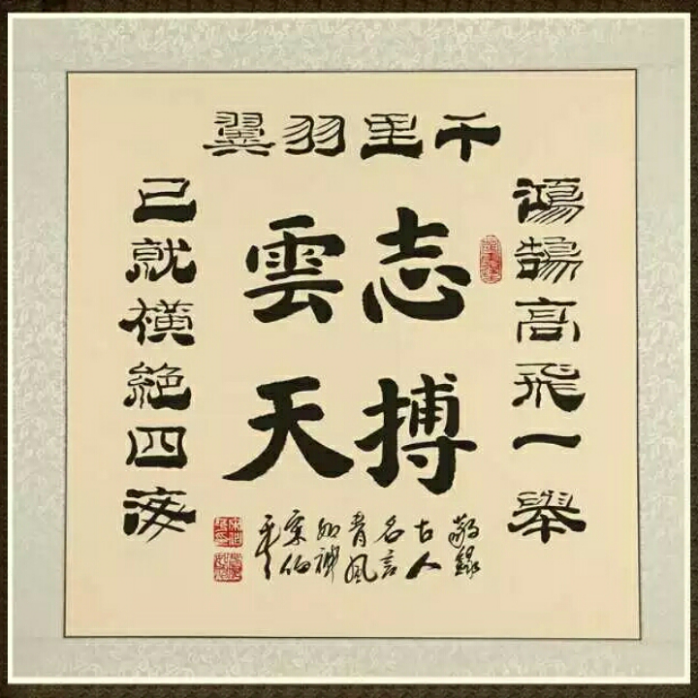 鴻鵠高飛一舉
千里羽翼
已就橫絕四海
志搏
雲天
敬錄
古人
名言
青風
宋伯